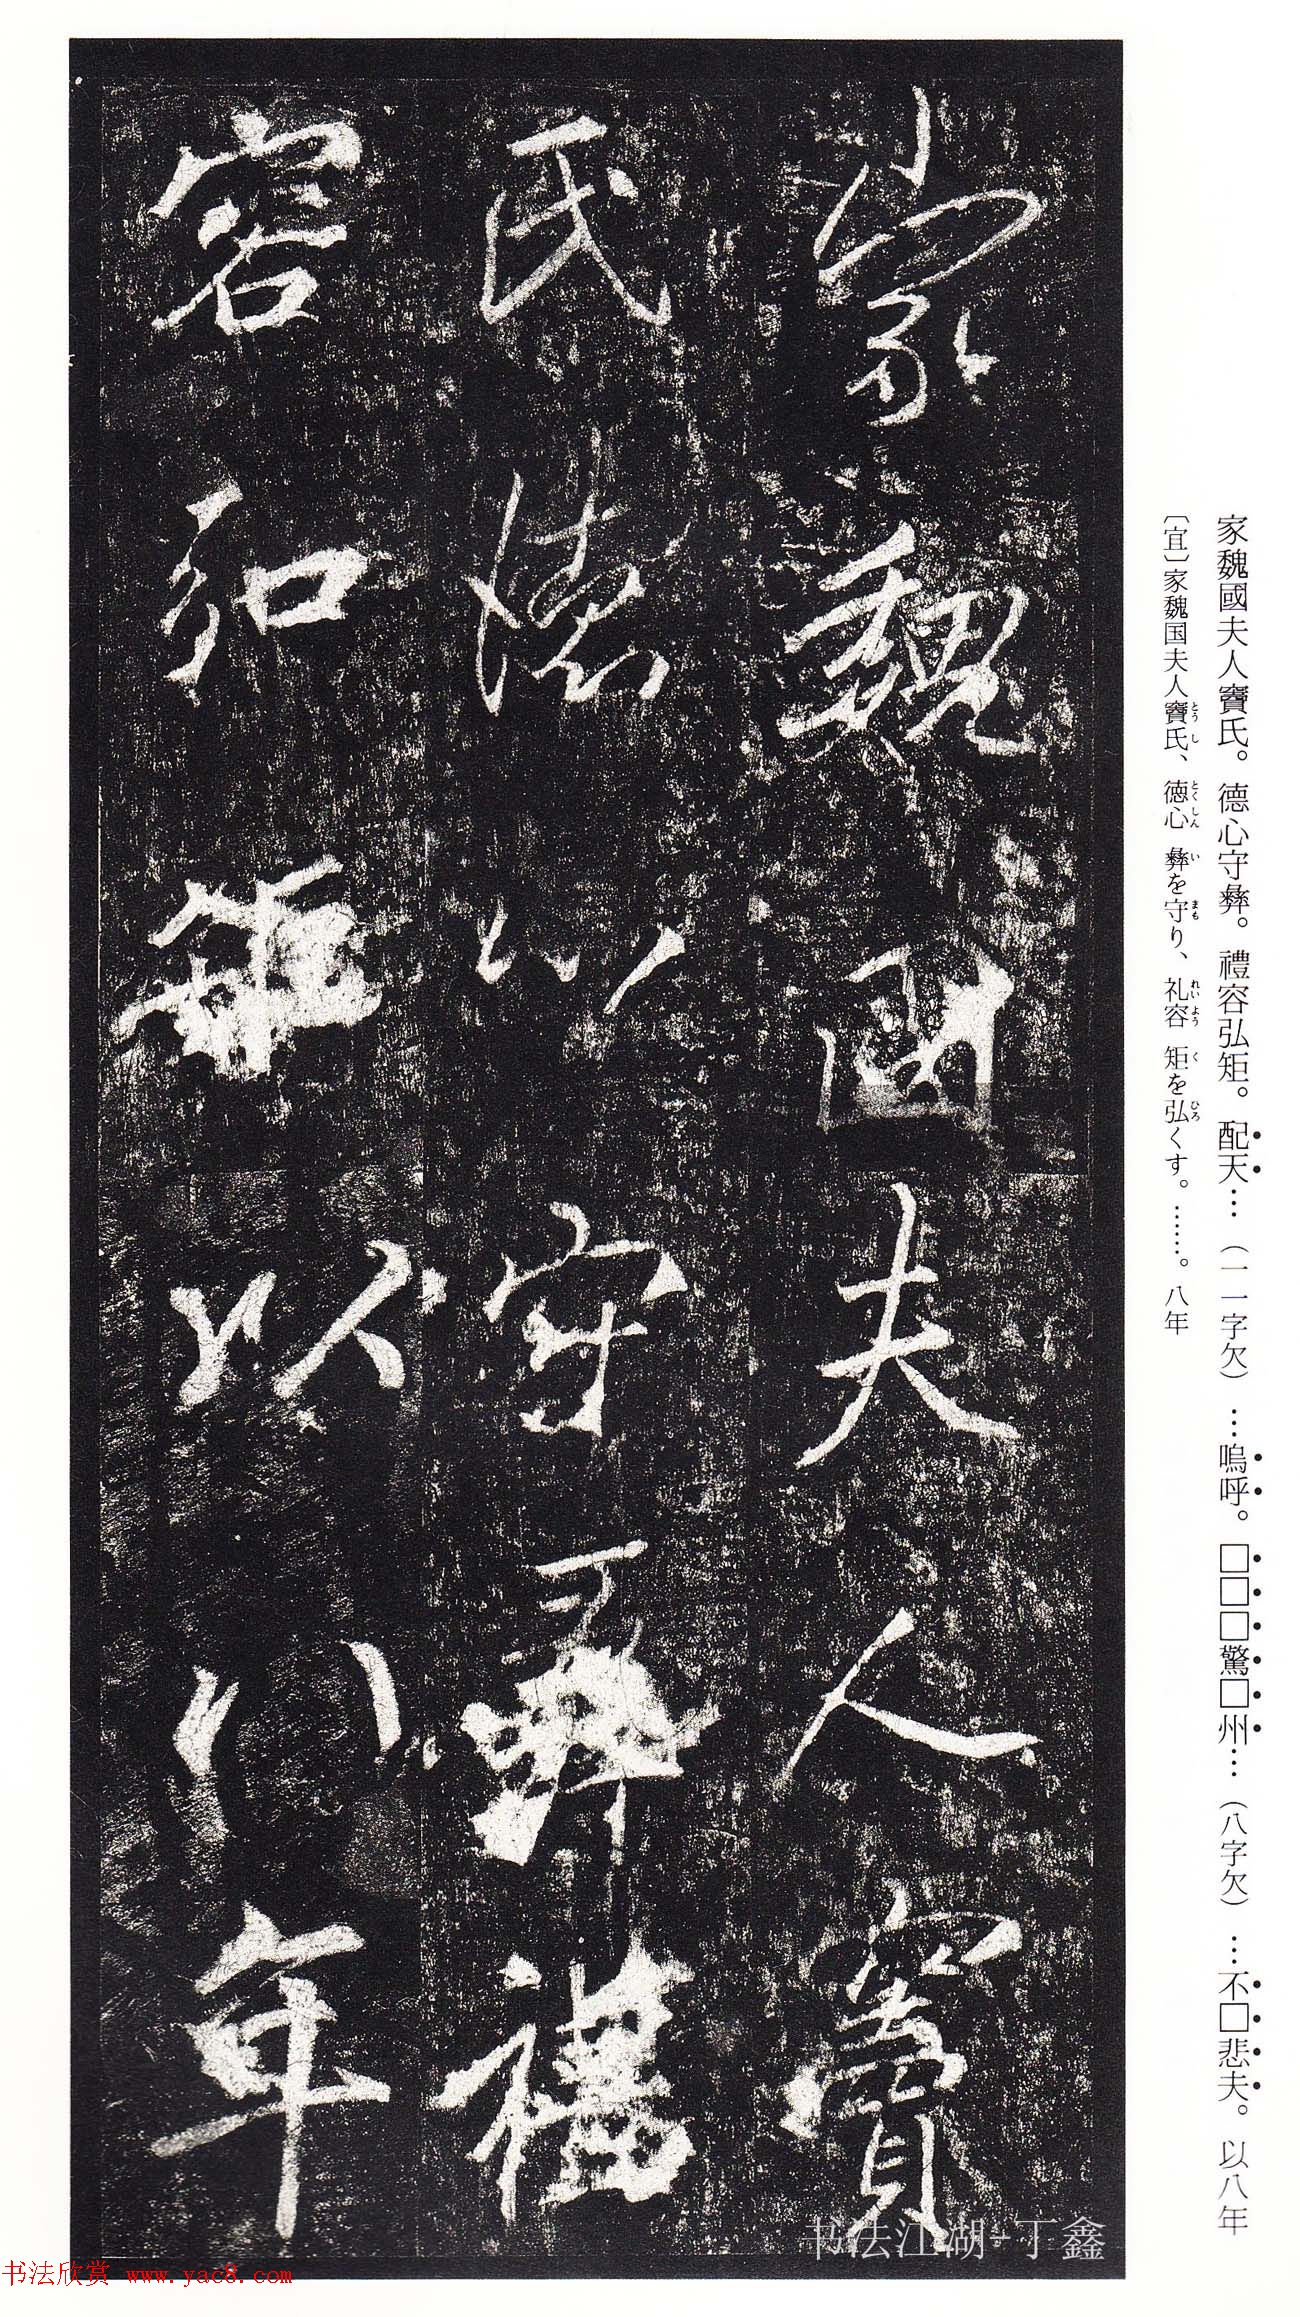 家魏國夫人竇氏。德心守彝。禮容弘矩。配天…（一一字欠）…嗚呼。□□□驚□州…（八字欠）…不□悲夫。以八年
〔宜〕家魏国夫人竇氏、徳心 彝を守り、礼容 矩を弘くす。……。八年
とうし とくしん い まも れいよう く ひろ
家魏國夫人竇
氏德心守彝禮
容弘矩以八年
书法江湖-丁鑫
书法欣赏 www.yac8.com